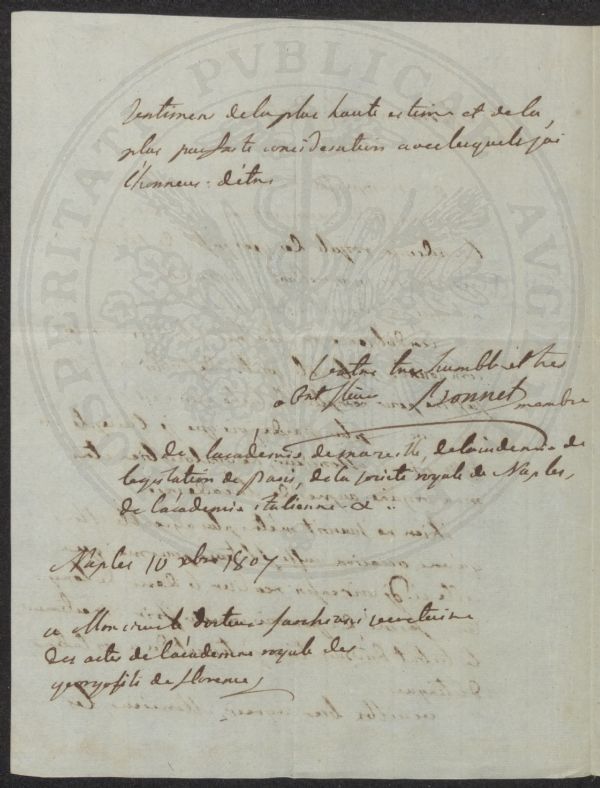 sentimens de la plus haute estime et de la
plus parfaite consideration avec lesquels j'ai
l'honneur d'etre
votre tres humble et tres
obt Bonnet membre
de l'academie de marseille, de l'academie de
legislation de paris, de la societe royale de Naples,
de l'academie italienne &
Naples 10 xbre 1807
a Monsieur le docteur secretaire
des actes de l'academie royale des
georgofili de florence
PROSPERITATI PVBLICAE AVGENDAE